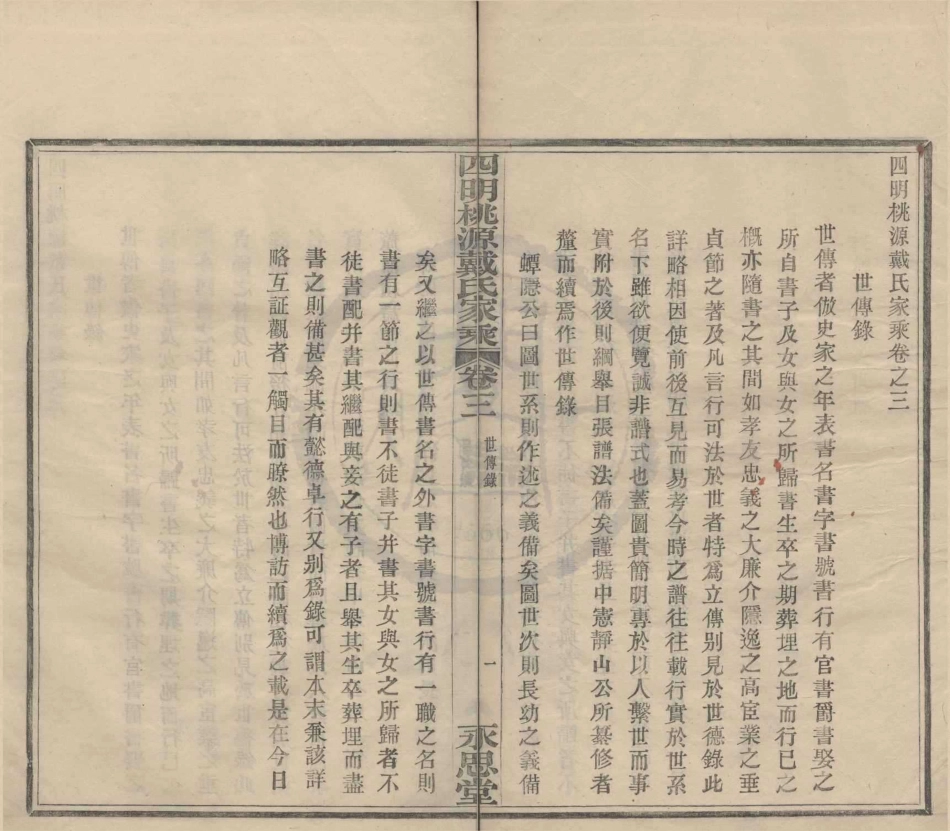 四明桃源戴氏家乘卷之三
世傳錄
世傳者倣史家之年表書名書字書號書行有官書爵書娶之
所自書子及女與女之所歸書生卒之期葬埋之地而行已之
概亦隨書之其間如孝友忠義之大廉介隱逸之高宦業之垂
貞節之著及凡言行可法於世者特爲立傳别見於世德錄此
詳略相因使前後互見而易考今時之譜往往載行實於世系
名下雖欲便覽誠非譜式也蓋圖貴簡明專於以人繫世而事
實附於後則綱舉目張譜法備矣謹据中憲靜山公所纂修者
釐而續焉作世傳錄
蟫隱公曰圖世系則作述之義備矣圖世次則長幼之義備
四明桃源戴氏家乘
卷三
世傳錄
一
永思堂
矣又繼之以世傳書名之外書字書號書行有一職之名則
書有一節之行則書不徒書子并書其女與女之所歸者不
徒書配并書其繼配與妾之有子者且舉其生卒葬埋而盡
書之則備甚矣其有懿德卓行又别爲錄可謂本末兼該詳
略互証觀者一觸目而瞭然也博訪而續爲之載是在今日